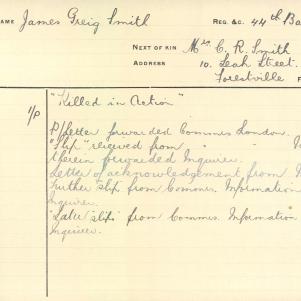 NAME James Greig Smith REG. &C. 44th Ba
NEXT OF KIN Mrs C. R. Smith
ADDRESS 10. Leah Street.
Forestville
"Killed in Action"
1/P P/Letter forwarded Commrs London.
"Slip" received from " I
therein forwarded Inquirer.
Letter of acknowledgement from
Further slip from Commrs. Information
Inquirer.
"Later slip" from Commrs. Information
Inquirer.